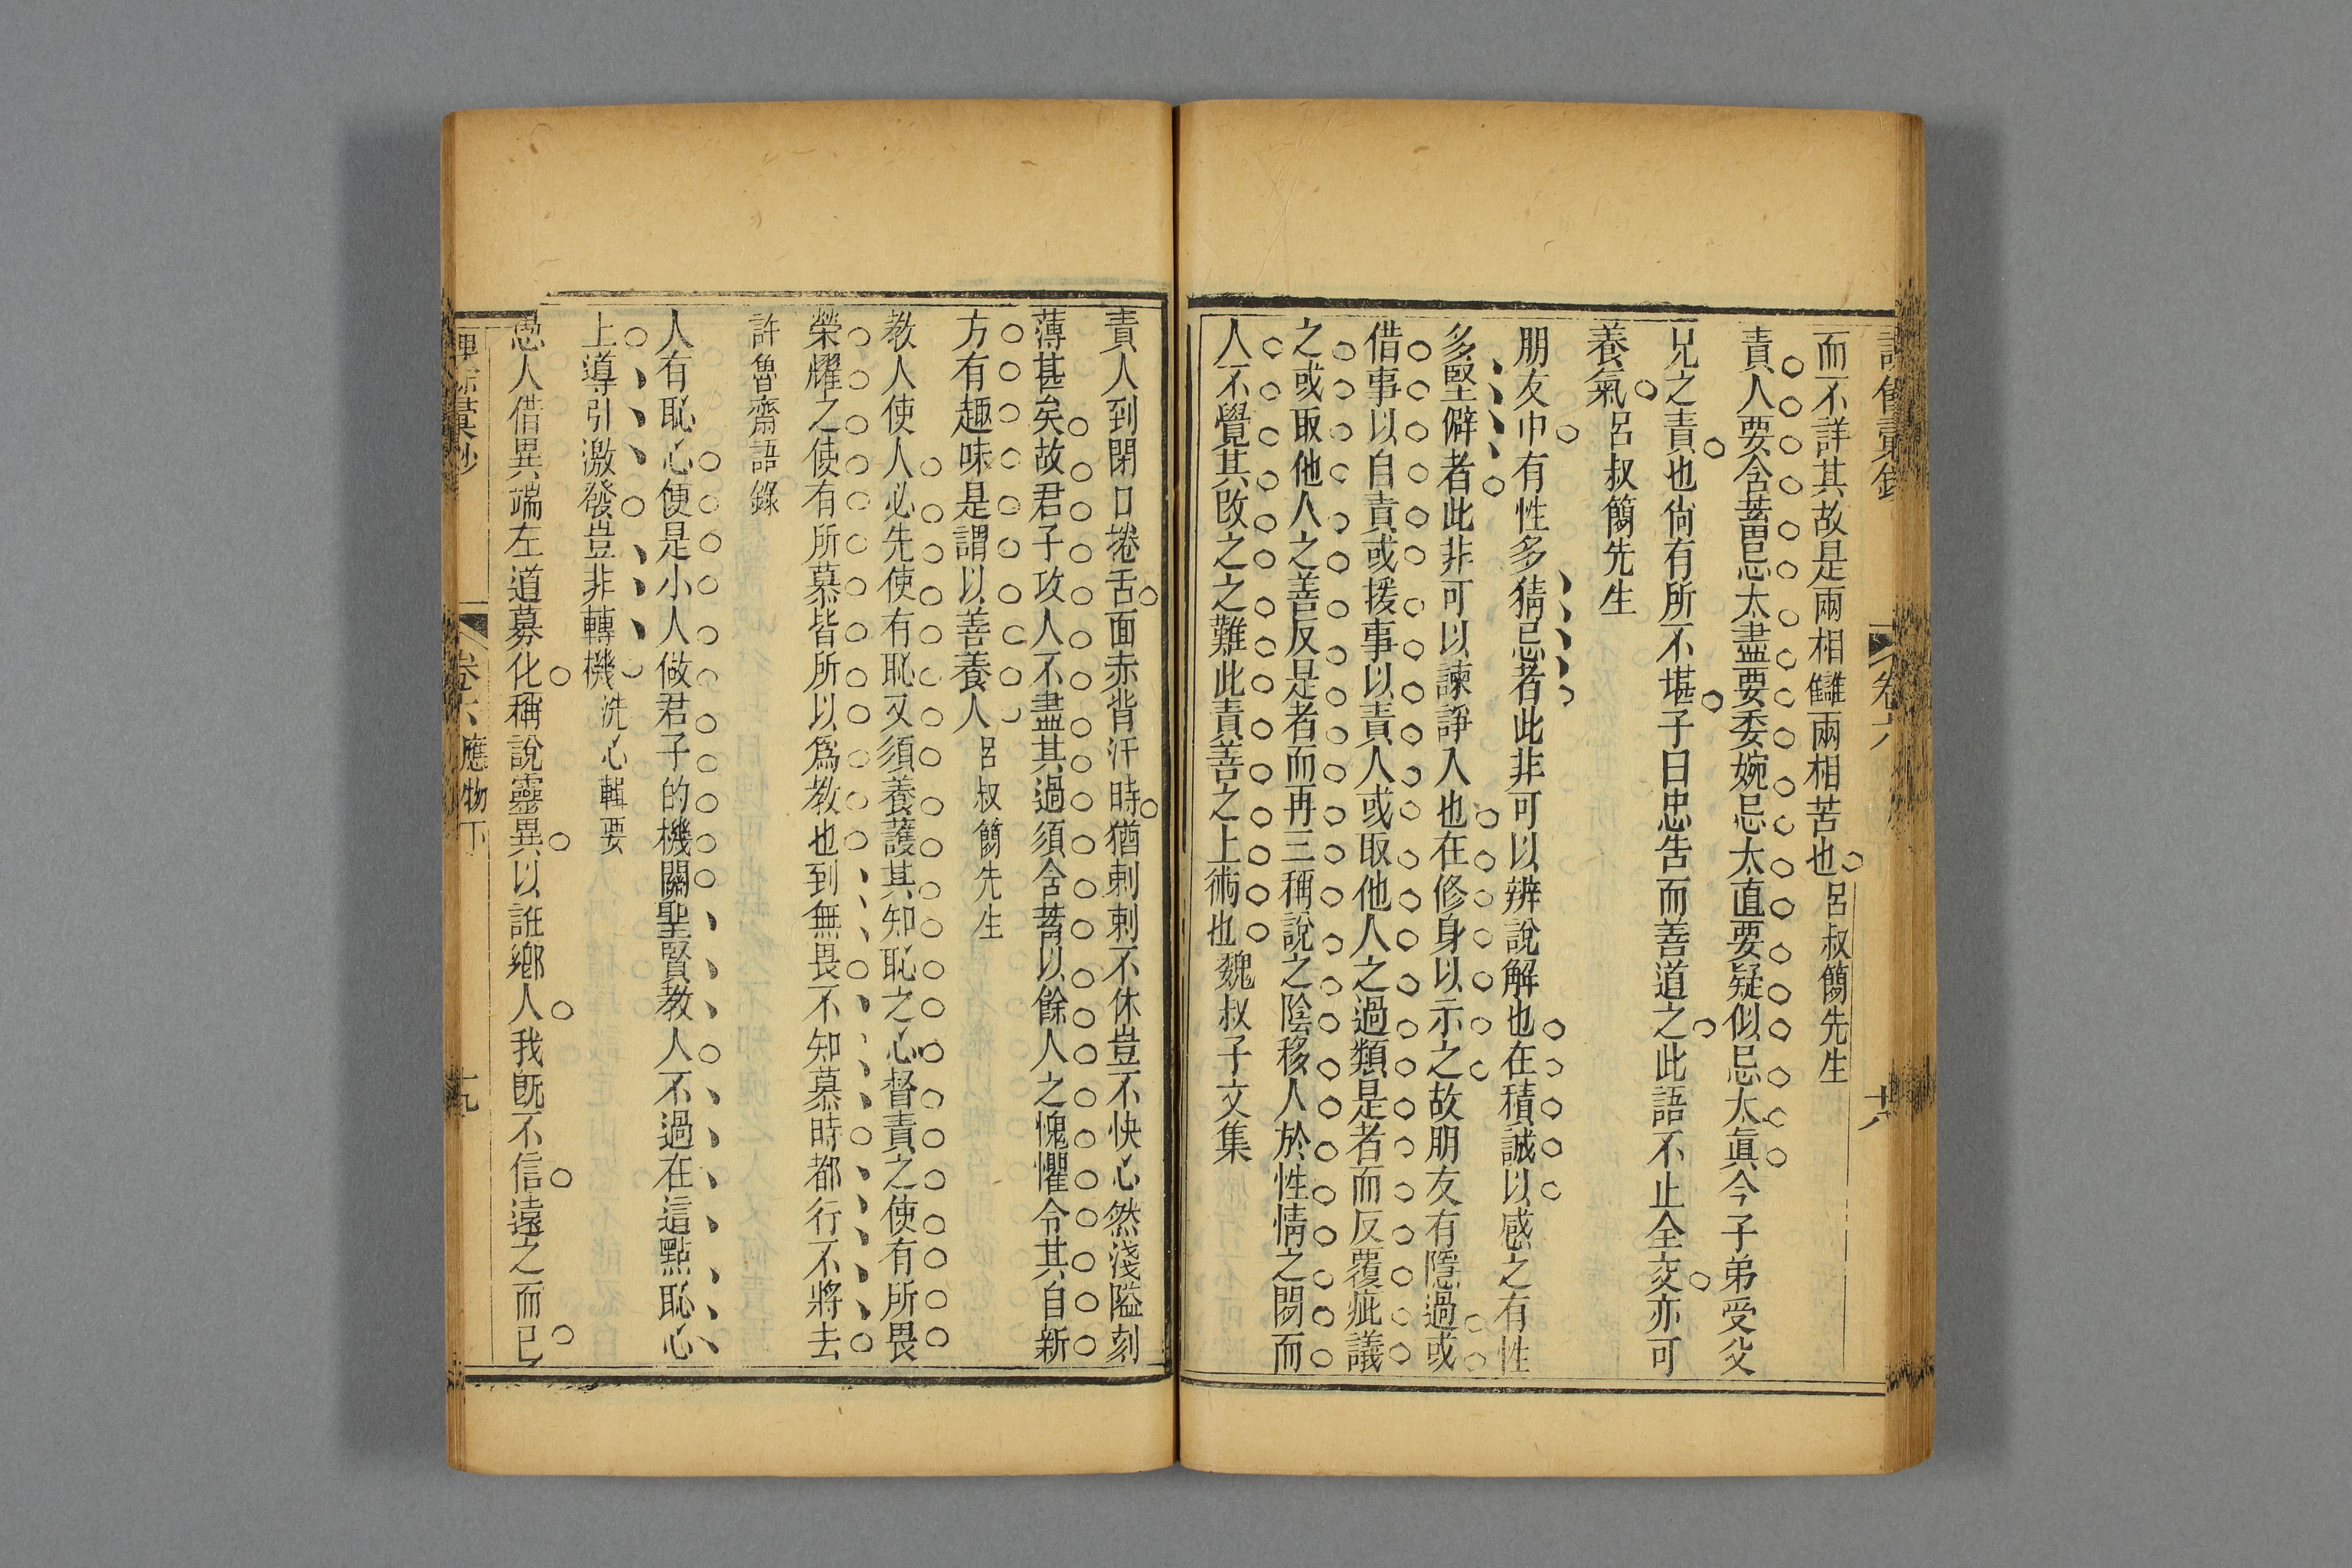 卷六
十八
而不詳其故是兩相讎兩相苦也 呂叔簡先生
責人要含蓄忌太盡要委婉忌太直要疑似忌太真今子弟受父
兄之責也尚有所不堪子曰忠告而善道之此語不止全交亦可
養氣 呂叔簡先生
朋友中有性多猜忌者此非可以辨說解也在積誠以感之有性
多堅僻者此非可以諫諍入也在修身以示之故朋友有隱過或
借事以自責或援事以責人或取他人之過類是者而反覆疵議
之或取他人之善反是者而再三稱說之陰移人於性情之間而
人不覺其改之之難此責善之上術也 魏叔子文集
責人到閉口捲舌面赤背汗時猶刺刺不休豈不快心然淺隘刻
薄甚矣故君子攻人不盡其過須含蓄以餘人之愧懼令其自新
方有趣味是謂以善養人 呂叔簡先生
教人使人必先使有恥又須養護其知恥之心督責之使有所畏
榮耀之使有所慕皆所以爲教也到無畏不知慕時都行不將去
許魯齋語錄
人有恥心便是小人做君子的機關聖賢教人不過在這點恥心
上導引激發豈非轉機 洗心輯要
愚人借異端左道募化稱說靈異以誑鄉人我既不信遠之而已
卷六 應物下
十九